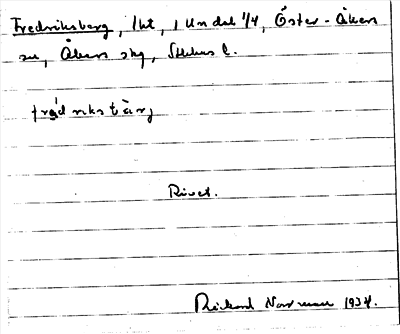 Fredriksberg, lht, i Undal 1/4, Öster-Åkers
sn, Åkers skg, Sthlms l.
frédrɩksbärj
Rivet.
Rickard Norrman 1934.